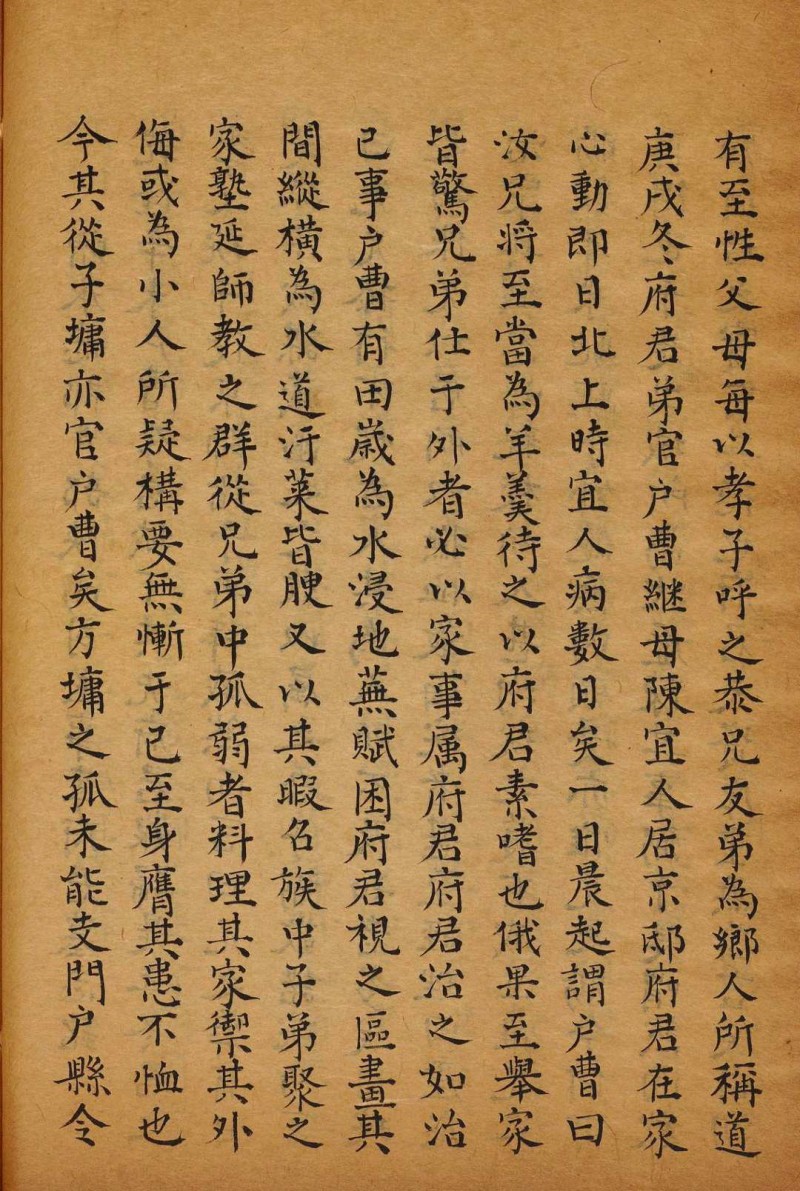 有至性父母每以孝子呼之恭兄友弟為鄉人所稱道
庚戌冬府君弟官户曹繼母陳宜人居京邸府君在家
心動即日北上時宜人病數日矣一日晨起謂户曹曰
汝兄将至當為羊羹待之以府君素嗜也俄果至舉家
皆驚兄弟仕于外者必以家事属府君府君治之如治
己事户曹有田嵗為水浸地蕪賦困府君視之區畫其
間縱横為水道汙萊皆腴又以其暇名族中子弟聚之
家塾延師教之群從兄弟中孤弱者料理其家禦其外
侮或為小人所疑構要無慚于己至身膺其患不恤也
今其從子墉亦官户曹矣方墉之孤未能支門户縣令